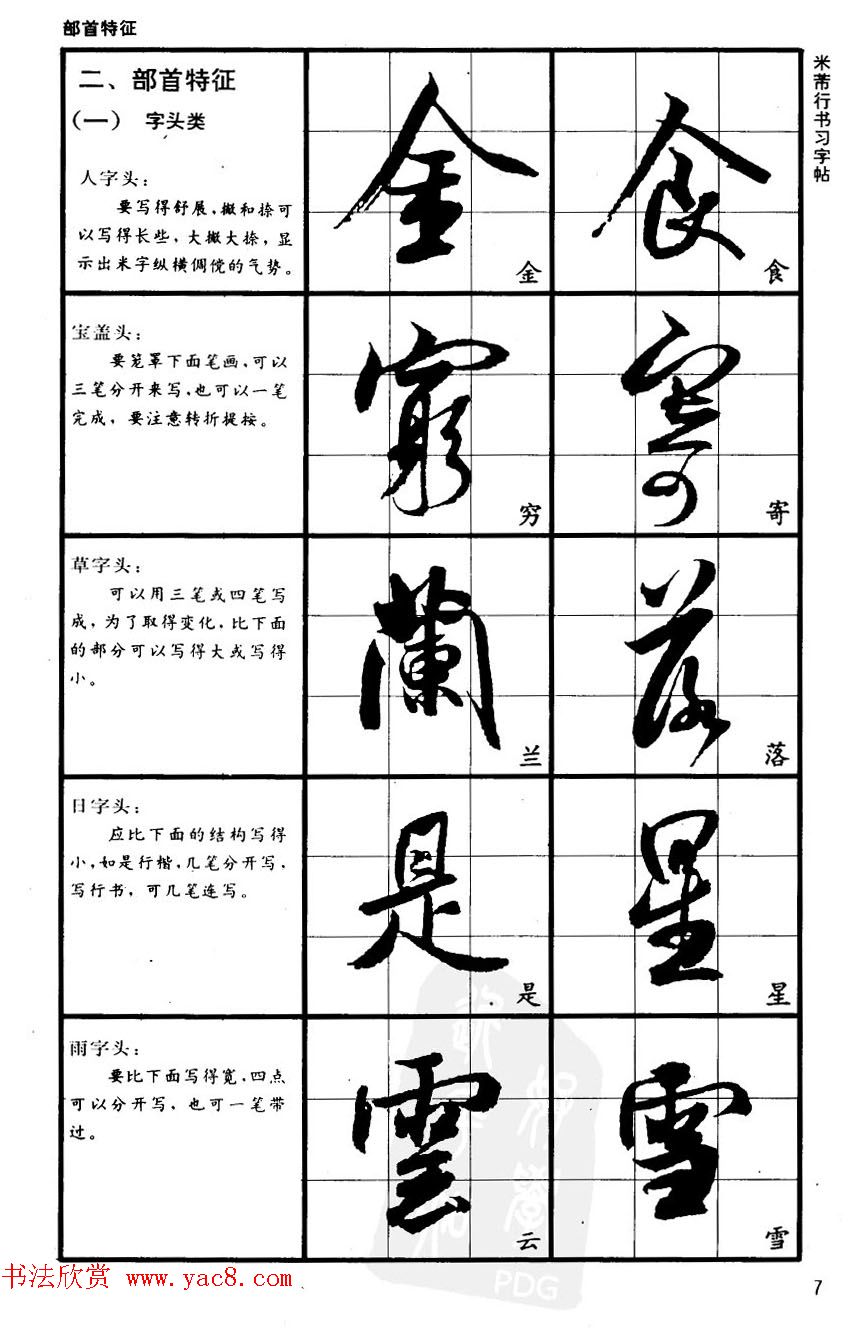 部首特征
米芾行书习字帖
二、部首特征
（一） 字头类
人字头：
要写得舒展，撇和捺可
以写得长些，大撇大捺，显
示出米字纵横倜傥的气势。
金
金
食
食
宝盖头：
要笼罩下面笔画，可以
三笔分开来写，也可以一笔
完成，要注意转折提按。
窮
穷
寄
寄
草字头：
可以用三笔或四笔写
成，为了取得变化，比下面
的部分可以写得大或写得
小。
蘭
兰
落
落
日字头：
应比下面的结构写得
小，如是行楷，几笔分开写，
写行书，可几笔连写。
是
是
星
星
雨字头：
要比下面写得宽，四点
可以分开写，也可一笔带
过。
雲
云
雪
雪
PDG
书法欣赏 www.yac8.com
7